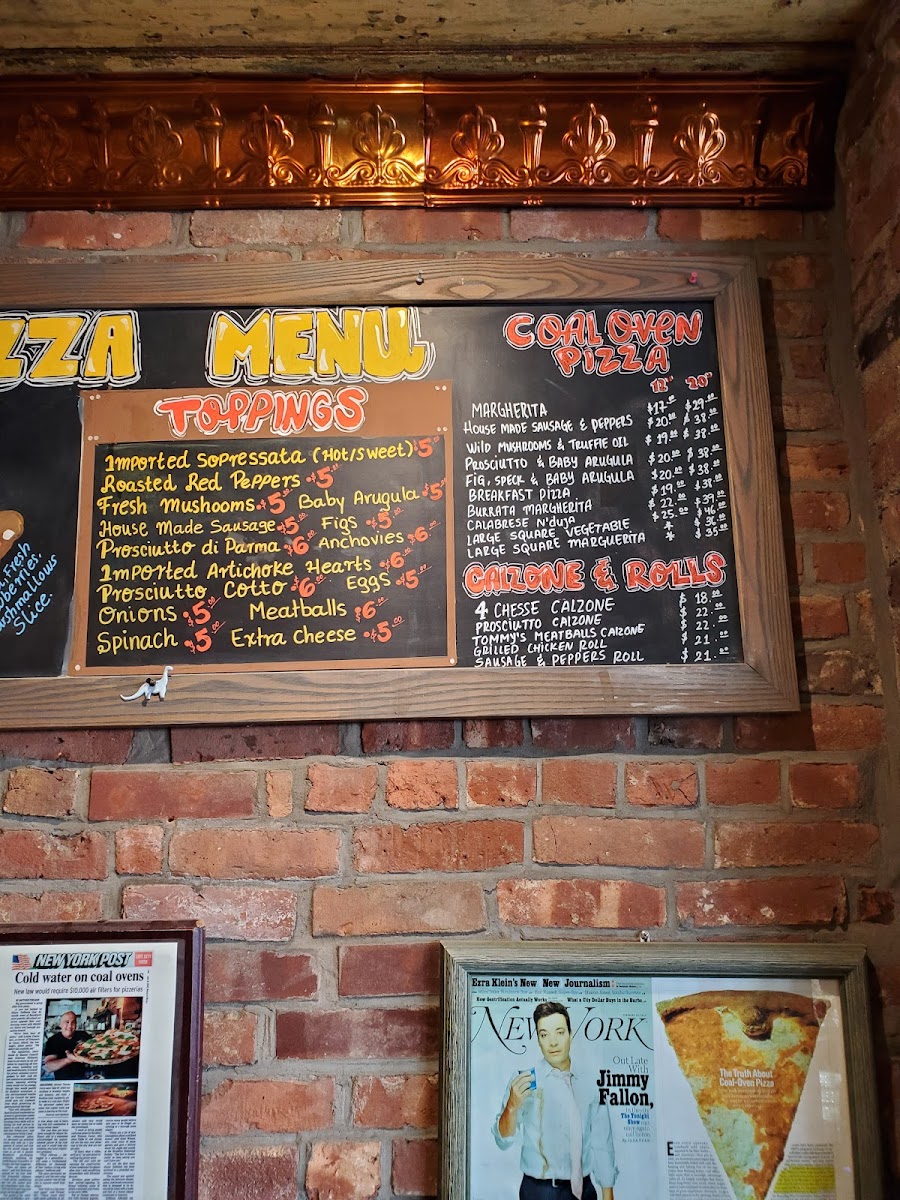 ZZA MENU
Fresh
berries
marshmallows
slice.
TOPPINGS
Imported Sopressata (Hot/Sweet) $5.00
Roasted Red Peppers $5.00
Fresh Mushooms $5.00 Baby Arugula $5.00
House Made Sausage $5.00 Figs $5.00
Prosciutto di Parma $6 Anchovies $6.00
Imported Artichoke Hearts $6.00
Prosciutto Cotto $6.00 Eggs $5.00
Onions $5.00 Meatballs $6.00
Spinach $5.00 Extra Cheese $5.00
COAL OVEN
PIZZA
12" 20"
MARGHERITA $17.00 $29.00
HOUSE MADE SAUSAGE & PEPPERS $20.00 $38.00
WILD MUSHROOMS & TRUFFIE OIL $19.00 $38.00
PROSCIUTTO & BABY ARUGULA $20.00 $38.00
FIG, SPECK & BABY ARUGULA $20.00 $38.00
BREAKFAST PIZZA $19.00 $38.00
BURRATA MARGHERITA $22.00 $39.00
CALABRESE N'DUJA $25.00 $46.00
LARGE SQUARE VEGETABLE * $36.00
LARGE SQUARE MARGUERITA * $35.00
CALZONE & ROLLS
4 CHESSE CALZONE $18.00
PROSCIUTTO CALZONE $22.00
TOMMY'S MEATBALLS CALZONE $22.00
GRILLED CHICKEN ROLL $21.00
SAUSAGE & PEPPERS ROLL $21.00
NEW YORK POST
Cold water on coal ovens
New law would require $10,000 air filters for pizzerias
Ezra Klein's New New Journalism
How Gentrification Actually Works
What a City Dollar Buys in the
NEW YORK
Out Late
With
Jimmy
Fallon,
The Tonight
Show
The Truth About
Coal-Oven Pizza